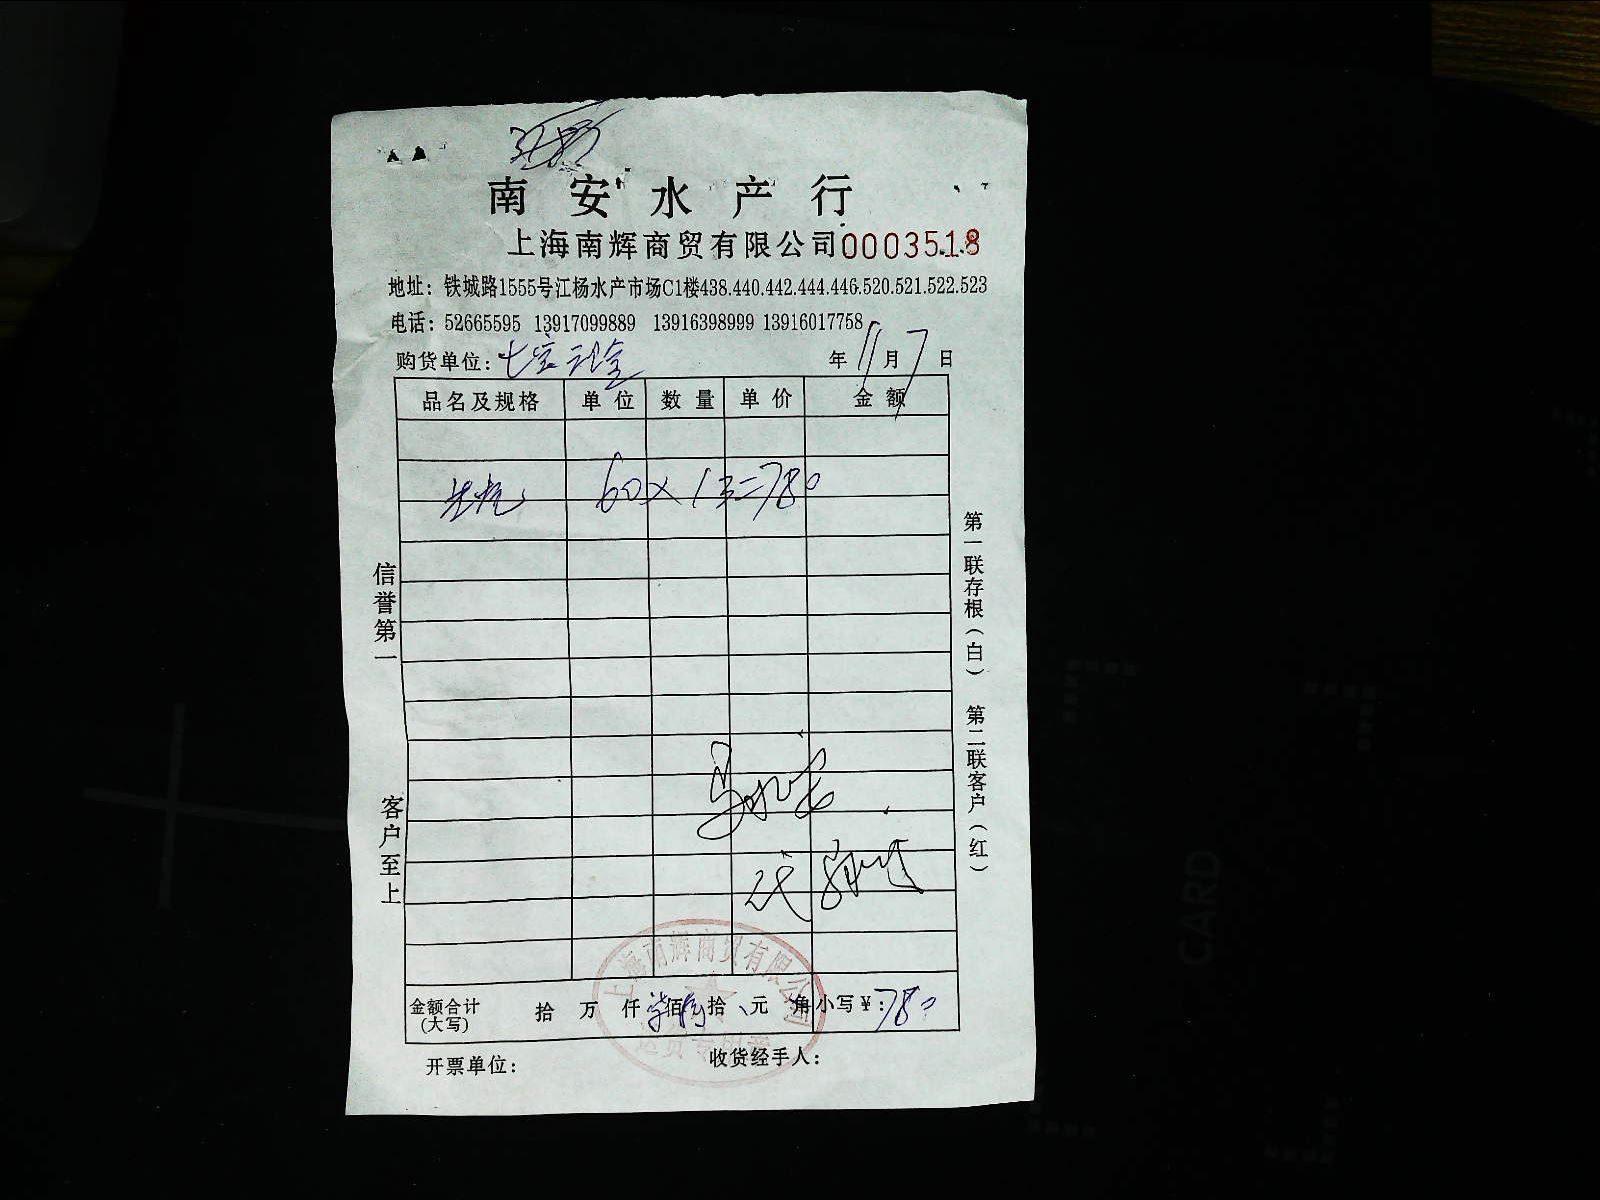 南安水产行
上海南辉商贸有限公司 0003518
地址：铁城路1555号江杨水产市场C1楼438.440.442.444.446.520.521.522.523
电话：52665595 13917099889 13916398999 13916017758
购货单位：七宝 年 11 月 7 日
品名及规格 单位 数量 单价 金额
60×13=780
信誉第一
客户至上
第一联存根（白） 第二联客户（红）
代
上海南辉商贸有限公司
金额合计（大写） 拾 万 仟 柒 佰 捌 拾 元 角 小写￥：780
开票单位： 收货经手人：